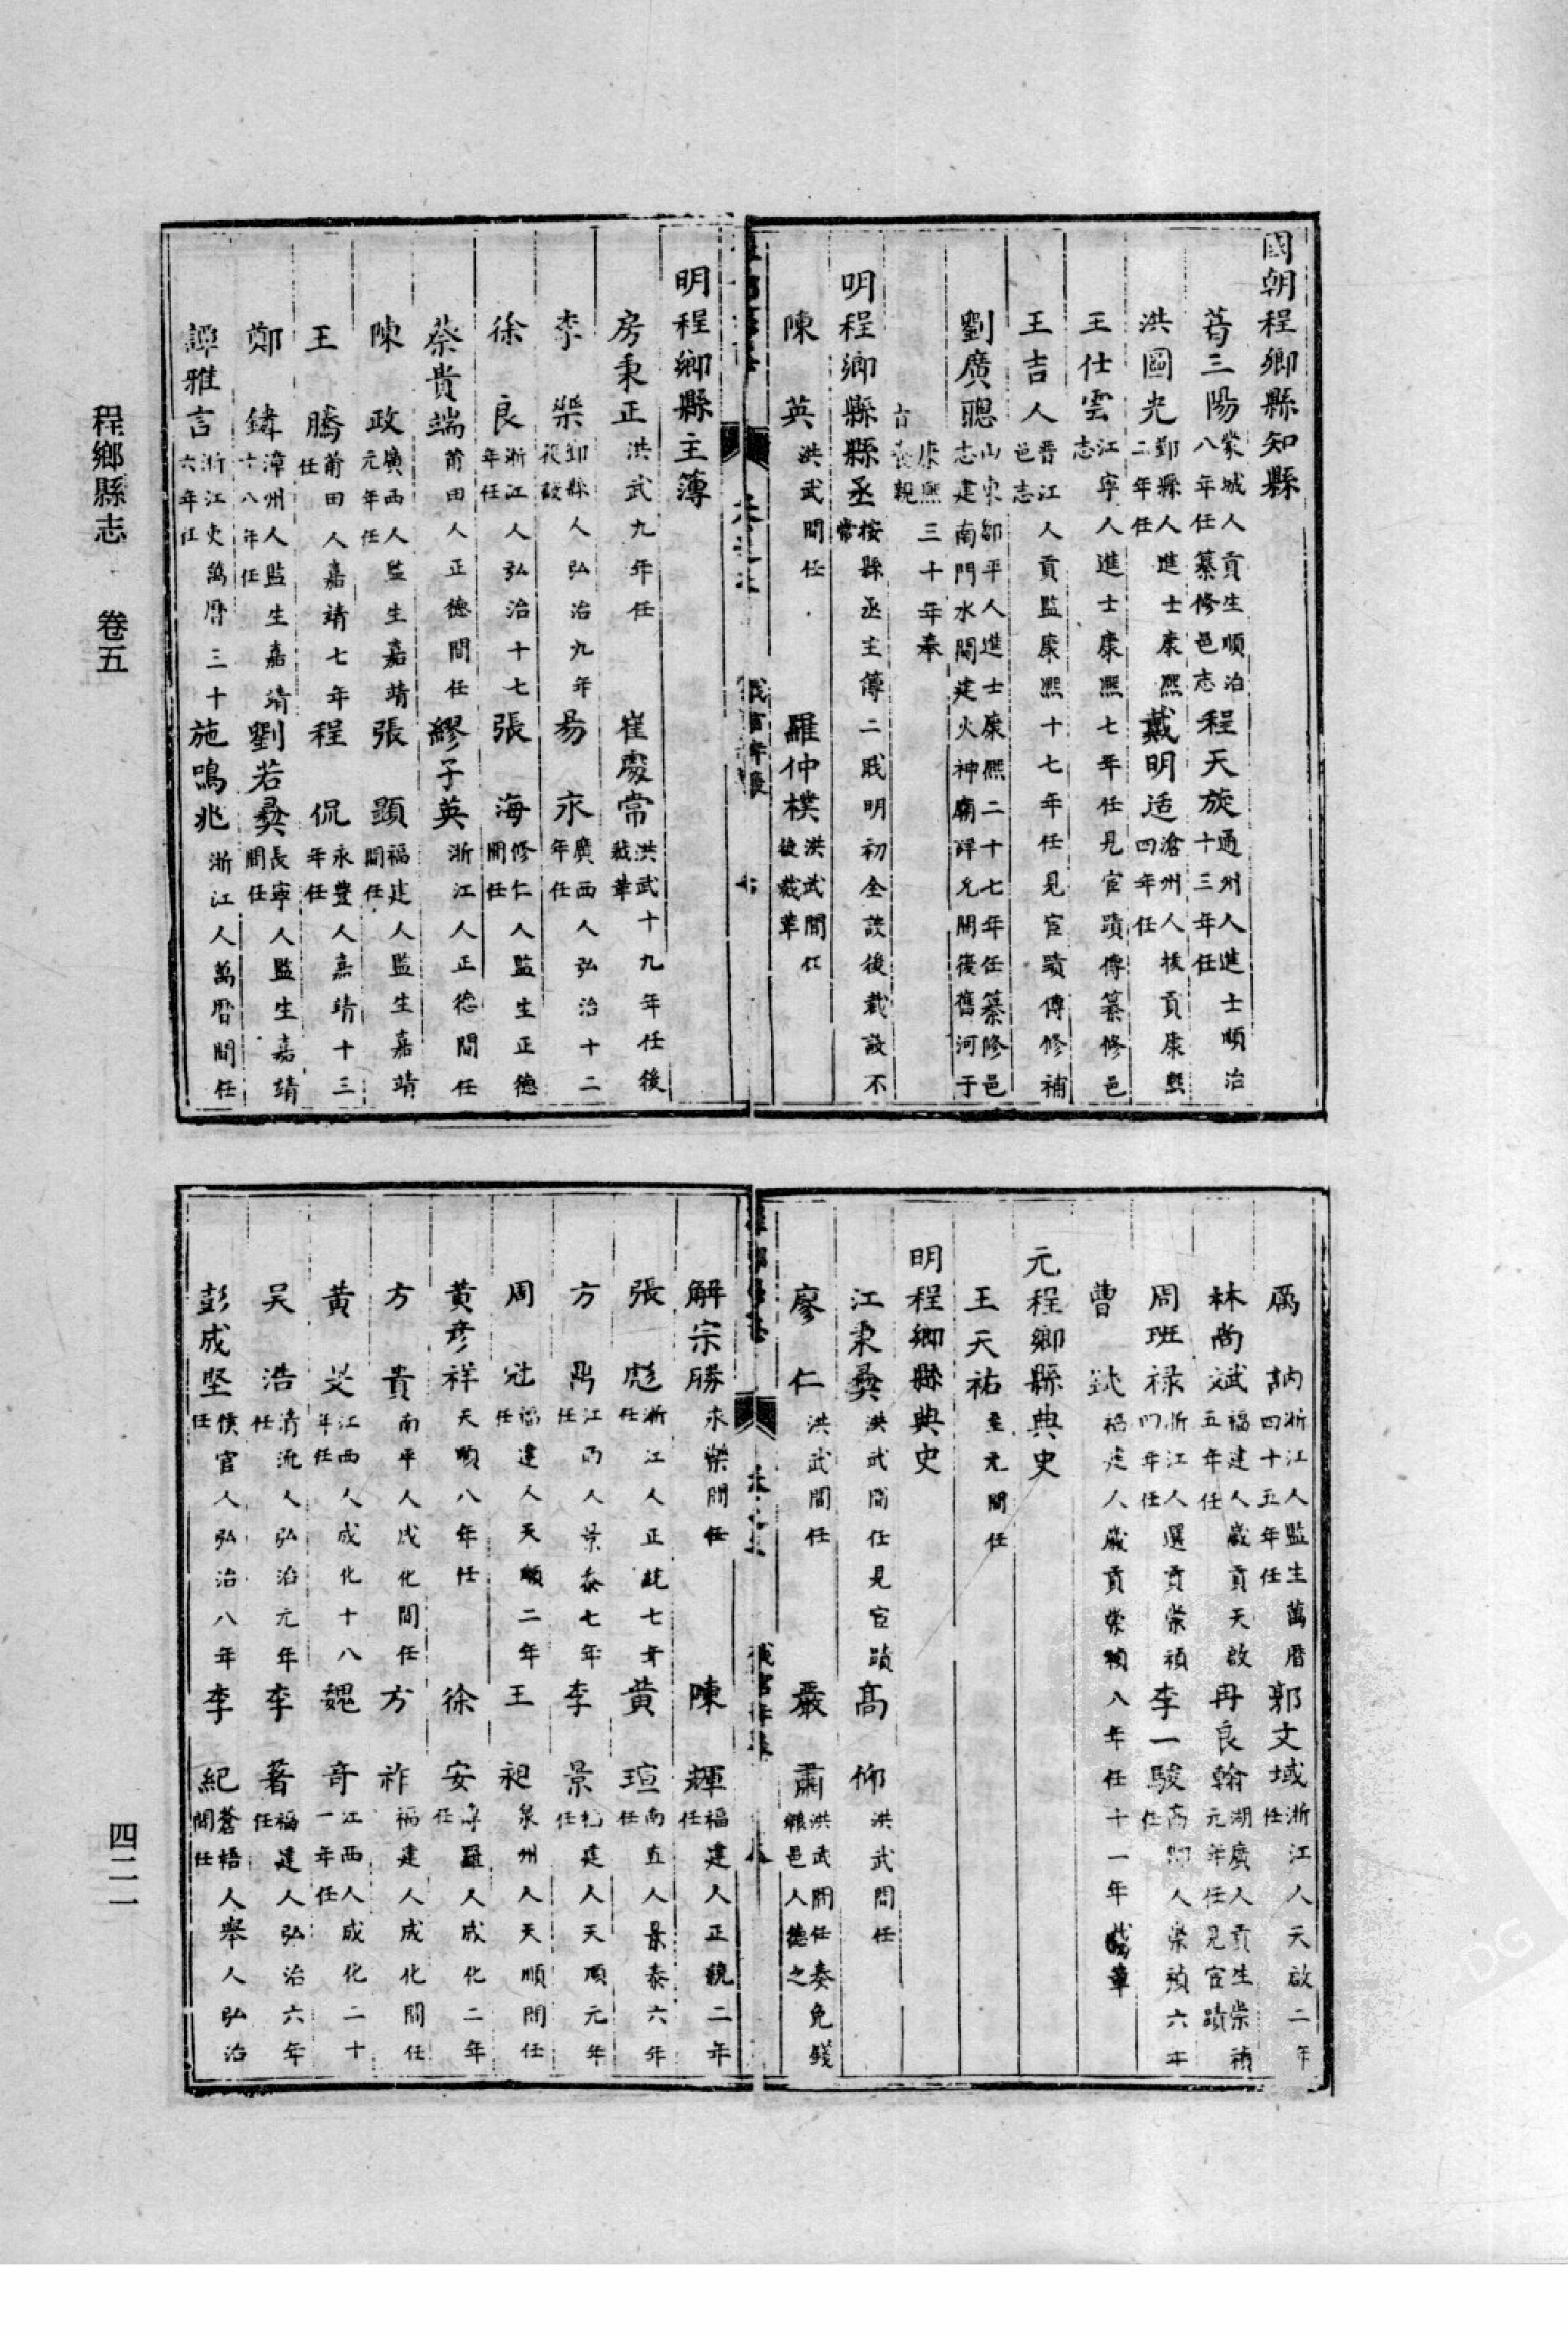 國朝程鄉縣知縣
葛三陽 蒙城人貢生順治八年任纂修邑志 程天旋 通州人進士順治十三年任
洪圖光 鄞縣人進士康熙二年任 戴明适 滄州人拔貢康熙四年任
王仕雲 江寧人進士康熙七年任見宦蹟傳纂修邑志
王吉人 晉江人貢監康熙十七年任見宦蹟傳修補邑志
劉廣聰 山東鄒平人進士康熙二十七年任纂修邑志建南門水關建火神廟詳允開復舊河于
康熙三十年奉旨
明程鄉縣縣丞 按縣丞主簿二戝明初全設後裁設不常
陳英 洪武間任 羅仲樸 洪武間任後裁革
明程鄉縣主簿
房秉正 洪武九年任 崔處常 洪武十九年任後裁革
李榮 人弘治九年復設 易永 廣西人弘治十二年任
徐良 浙江人弘治十七年任 張海 修仁人監生正德間任
蔡貴端 莆田人正德間任 繆子英 浙江人正德間任
陳政 廣西人監生嘉靖元年任 張顕 福建人監生嘉靖間任
王騰 莆田人嘉靖七年任 程侃 永豐人嘉靖十三年任
鄭鏽 漳州人監生嘉靖十八年任 劉若彝 長寧人監生嘉靖間任
譚雅言 浙江吏萬曆三十六年任 施鳴兆 浙江人萬曆間任
厲訥 浙江人監生萬曆四十五年任 郭文域 浙江人天啟二年任
林尚斌 福建人歲貢天啟五年任 冉良翰 湖廣人貢生崇禎元年任見宦蹟
周班祿 浙江人選貢崇禎四年任 李一駿 人崇禎六年任
曹 福建人歲貢崇禎八年任十一年裁革
元程鄉縣典史
王天祐 至元間任
明程鄉縣典史
江秉彝 洪武間任見宦蹟 高仰 洪武間任
廖仁 洪武間任 嚴肅 洪武間任奏免錢糧邑人德之
解宗勝 永樂間任 陳輝 福建人正統二年任
張彪 浙江人正統七年任 黃瑄 南直人景泰六年任
方昺 江西人景泰七年任 李景 福建人天順元年任
周冠 福建人天順二年任 王昶 泉州人天順間任
黃彥祥 天順八年任 徐安 博羅人成化二年任
方貴 南平人成化間任 方祚 福建人成化間任
黃旻 江西人成化十八年任 魏奇 江西人成化二十一年任
吳浩 清流人弘治元年任 李著 福建人弘治六年任
彭成堅 侯官人弘治八年任 李紀 蒼梧人舉人弘治間任
程鄉縣志 卷五
四二一